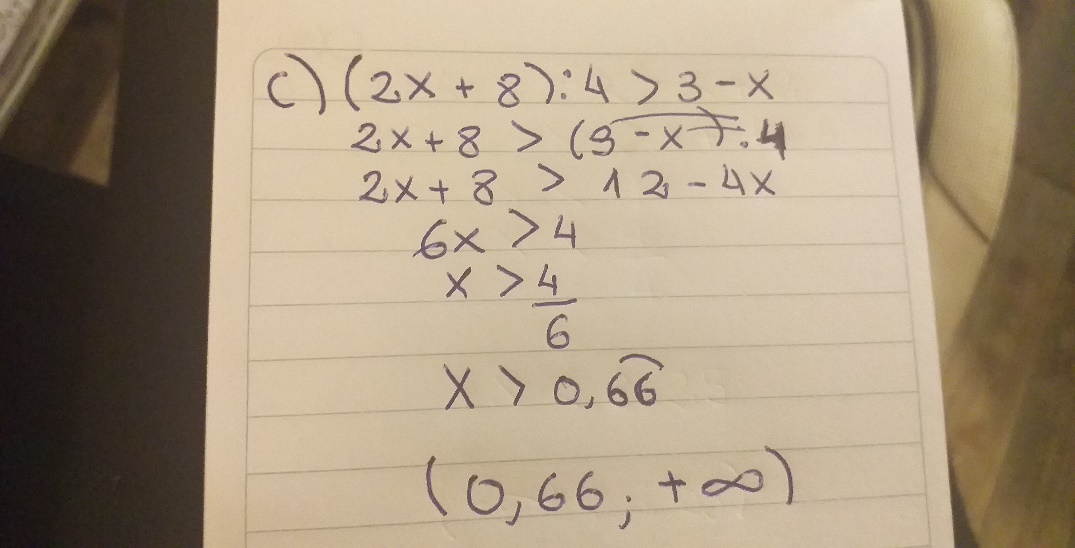 c) (2x + 8) : 4 > 3 - x
2x + 8 > (3 - x) · 4
2x + 8 > 12 - 4x
6x > 4
x > 4/6
x > 0,6͡6
(0,66; +∞)